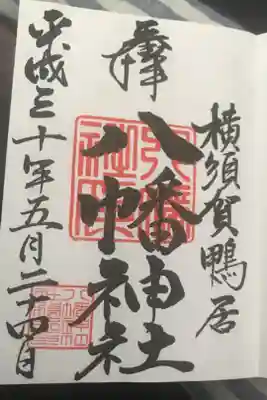 横須賀鴨居
奉拝
八幡神社
平成三十年五月二十四日